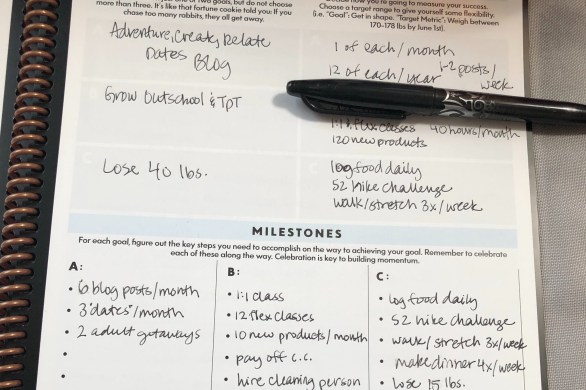 more than three. It's like that fortune cookie told you: If you
chase too many rabbits, they all get away.
you're going to measure your success.
Choose a target range to give yourself some flexibility.
(i.e. "Goal": Get in shape, "Target Metric": Weigh between
170-178 lbs by June 1st).
Adventure, Create, Relate
Dates Blog
1 of each/month
12 of each/year 1-2 posts/
week
Grow Outschool & TpT
1:1 & flex classes 40 hours/month
120 new products
Lose 40 lbs.
log food daily
52 hike challenge
walk/stretch 3x/week
MILESTONES
For each goal, figure out the key steps you need to accomplish on the way to achieving your goal. Remember to celebrate
each of these along the way. Celebration is key to building momentum.
A:
• 6 blog posts/month
• 3 "dates"/month
• 2 adult getaways
•
•
B:
• 1:1 class
• 12 flex classes
• 10 new products/month
• pay off c.c.
• hire cleaning person
C:
• log food daily
• 52 hike challenge
• walk/stretch 3x/week
• make dinner 4x/week
• Lose 15 lbs.